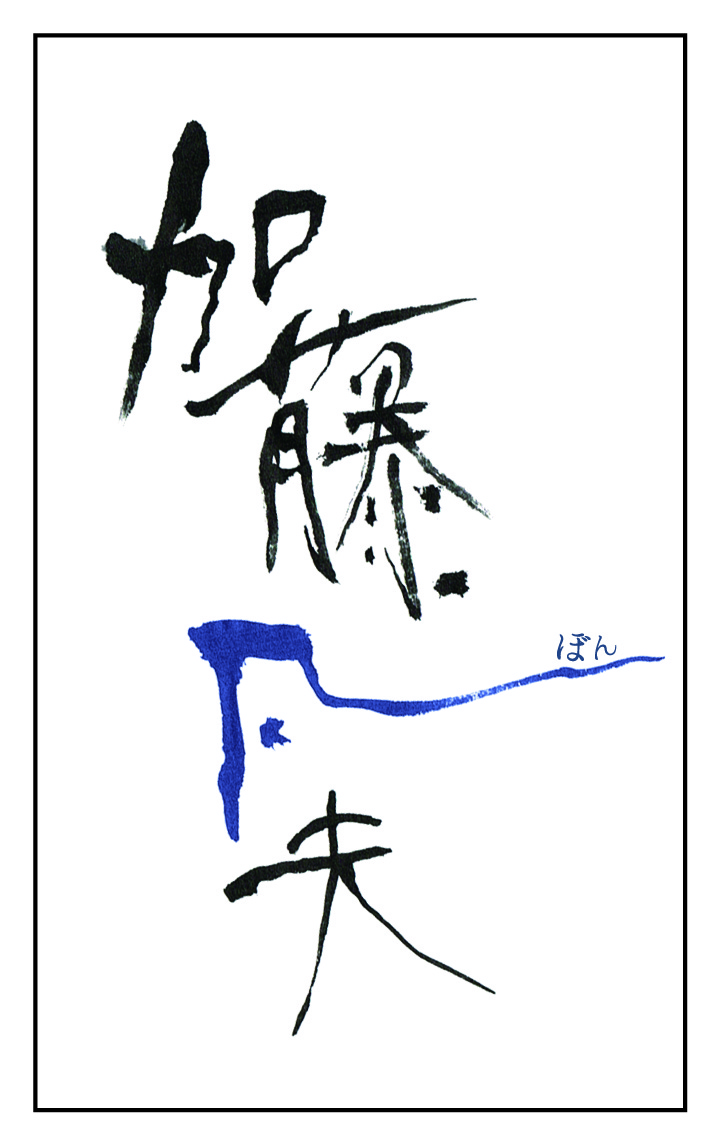 加藤凡夫
ぼん